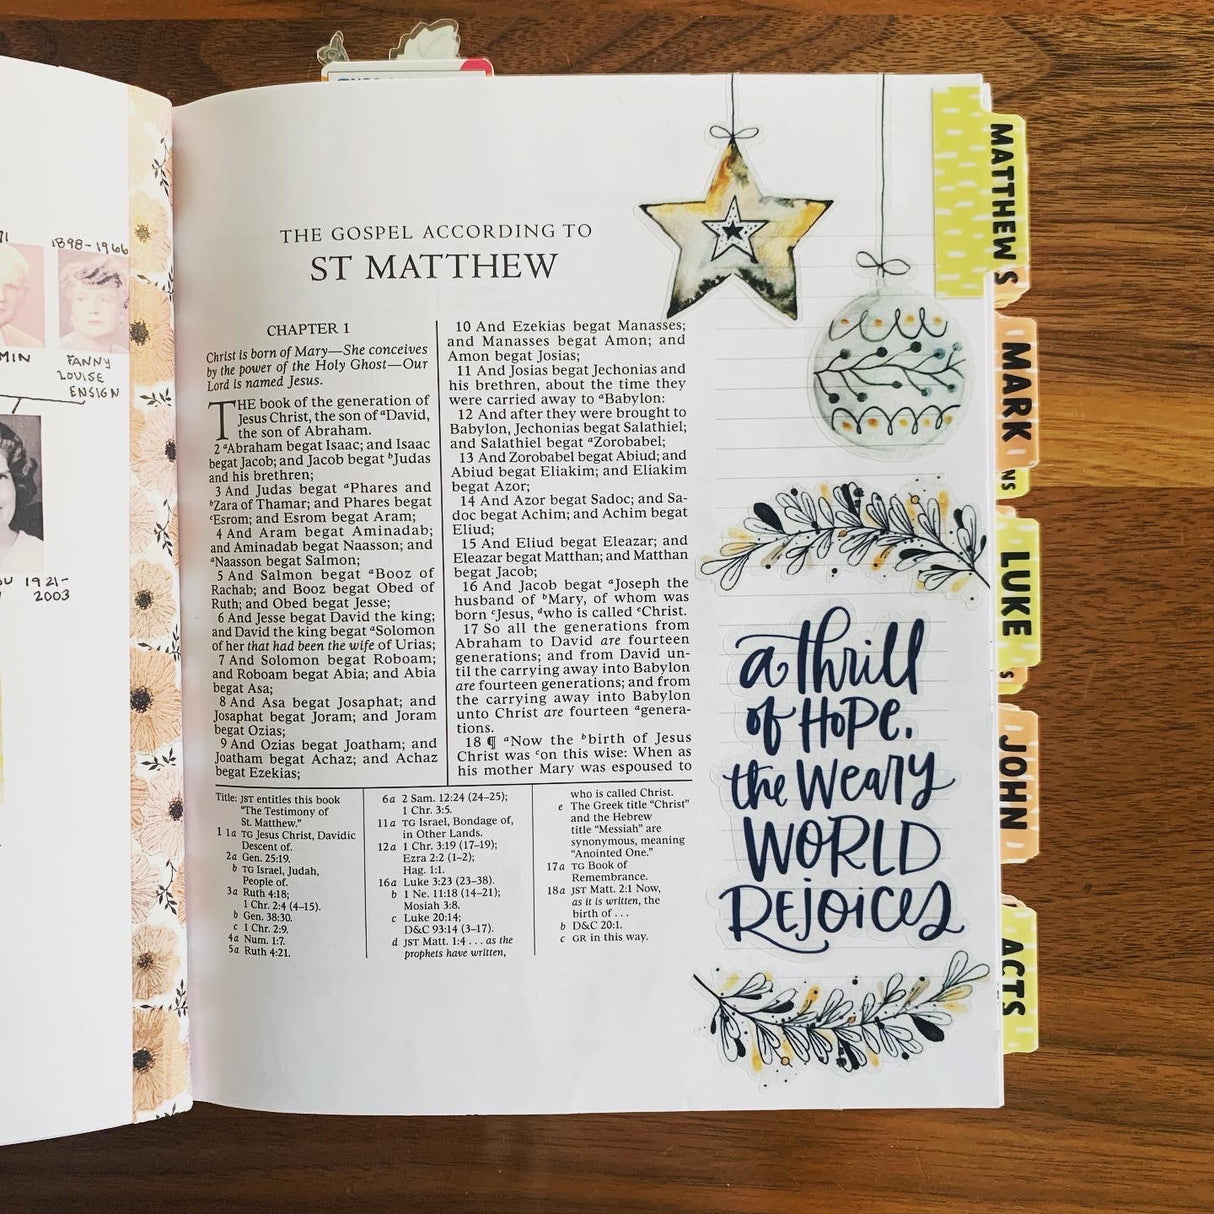 1898-1966
MIN
FANNY
LOUISE
ENSIGN
1921-
2003
THE GOSPEL ACCORDING TO
ST MATTHEW
CHAPTER 1
Christ is born of Mary—She conceives
by the power of the Holy Ghost—Our
Lord is named Jesus.
THE book of the generation of
Jesus Christ, the son of aDavid,
the son of Abraham.
2 aAbraham begat Isaac; and Isaac
begat Jacob; and Jacob begat bJudas
and his brethren;
3 And Judas begat aPhares and
bZara of Thamar; and Phares begat
cEsrom; and Esrom begat Aram;
4 And Aram begat Aminadab;
and Aminadab begat Naasson; and
aNaasson begat Salmon;
5 And Salmon begat aBooz of
Rachab; and Booz begat Obed of
Ruth; and Obed begat Jesse;
6 And Jesse begat David the king;
and David the king begat aSolomon
of her that had been the wife of Urias;
7 And Solomon begat Roboam;
and Roboam begat Abia; and Abia
begat Asa;
8 And Asa begat Josaphat; and
Josaphat begat Joram; and Joram
begat Ozias;
9 And Ozias begat Joatham; and
Joatham begat Achaz; and Achaz
begat Ezekias;
10 And Ezekias begat Manasses;
and Manasses begat Amon; and
Amon begat Josias;
11 And Josias begat Jechonias and
his brethren, about the time they
were carried away to aBabylon:
12 And after they were brought to
Babylon, Jechonias begat Salathiel;
and Salathiel begat aZorobabel;
13 And Zorobabel begat Abiud; and
Abiud begat Eliakim; and Eliakim
begat Azor;
14 And Azor begat Sadoc; and Sa-
doc begat Achim; and Achim begat
Eliud;
15 And Eliud begat Eleazar; and
Eleazar begat Matthan; and Matthan
begat Jacob;
16 And Jacob begat aJoseph the
husband of bMary, of whom was
born cJesus, dwho is called eChrist.
17 So all the generations from
Abraham to David are fourteen
generations; and from David un-
til the carrying away into Babylon
are fourteen generations; and from
the carrying away into Babylon
unto Christ are fourteen agenera-
tions.
18 ¶ aNow the bbirth of Jesus
Christ was con this wise: When as
his mother Mary was espoused to
Title: JST entitles this book
"The Testimony of
St. Matthew."
1 1a TG Jesus Christ, Davidic
Descent of.
2a Gen. 25:19.
b TG Israel, Judah,
People of.
3a Ruth 4:18;
1 Chr. 2:4 (4–15).
b Gen. 38:30.
c 1 Chr. 2:9.
4a Num. 1:7.
5a Ruth 4:21.
6a 2 Sam. 12:24 (24–25);
1 Chr. 3:5.
11a TG Israel, Bondage of,
in Other Lands.
12a 1 Chr. 3:19 (17–19);
Ezra 2:2 (1–2);
Hag. 1:1.
16a Luke 3:23 (23–38).
b 1 Ne. 11:18 (14–21);
Mosiah 3:8.
c Luke 20:14;
D&C 93:14 (3–17).
d JST Matt. 1:4 . . . as the
prophets have written,
who is called Christ.
e The Greek title "Christ"
and the Hebrew
title "Messiah" are
synonymous, meaning
"Anointed One."
17a TG Book of
Remembrance.
18a JST Matt. 2:1 Now,
as it is written, the
birth of . . .
b D&C 20:1.
c GR in this way.
a thrill
of HOPE.
the weary
WORLD
REJOICES
MATTHEW
S
MARK
NS
LUKE
S
JOHN
ACTS